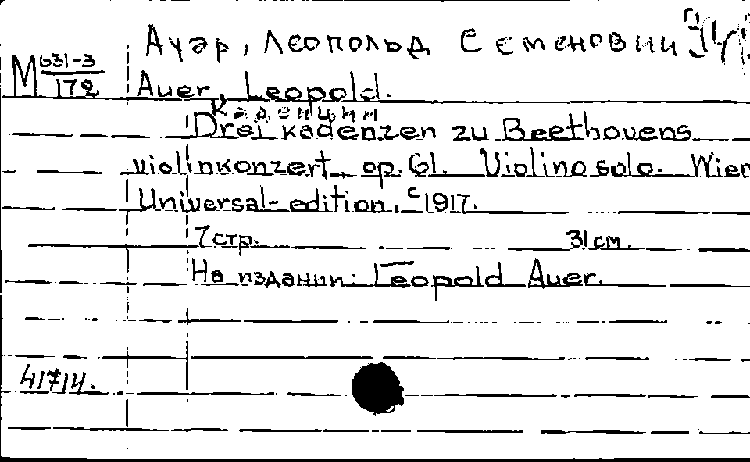 Ауэр, Леопольд Семенович
М 631-3
172
Auer, Leopold.
Каденции
Drei kadenzen zu Beethovens
violinkonzert, op. 61. Violino solo. Wien
Universal-edition, c 1917.
7 стр. 31 см.
На издании: Leopold Auer.
41714.